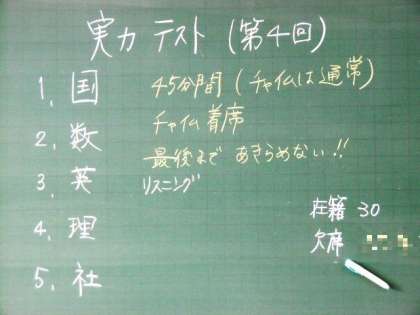 実力テスト(第4回)
1. 国 45分間(チャイムは通常)
2. 数 チャイム着席
最後まで あきらめない!!
3. 英 リスニング
4. 理
5. 社
在籍 30
欠席